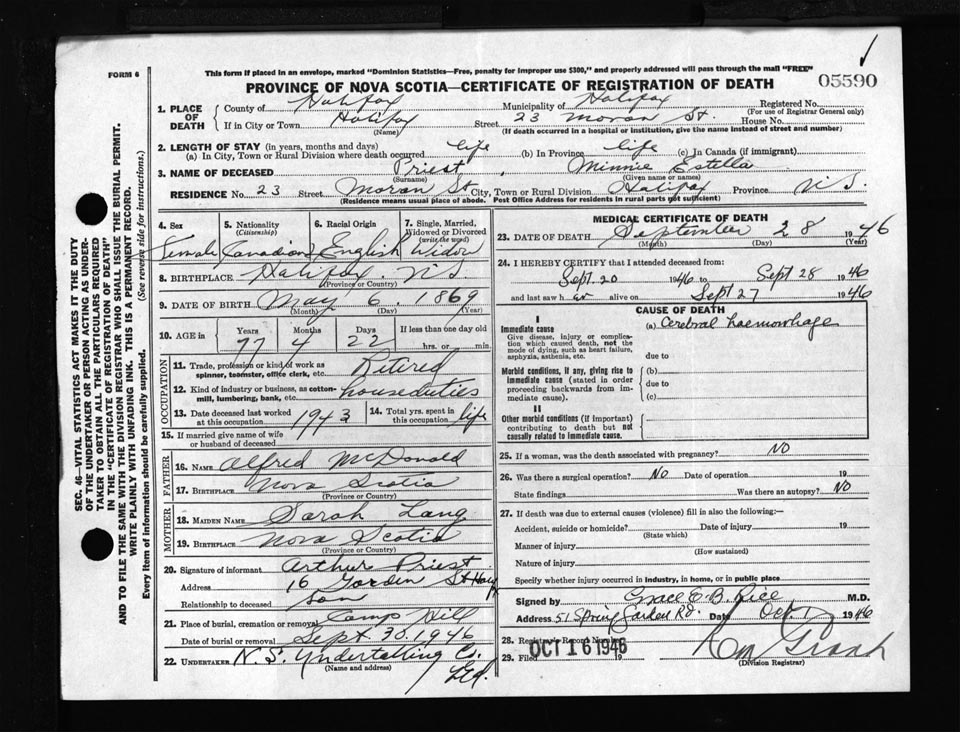 FORM 6
This form if placed in an envelope, marked "Dominion Statistics—Free, penalty for improper use $300," and properly addressed will pass through the mail "FREE"
05590
PROVINCE OF NOVA SCOTIA—CERTIFICATE OF REGISTRATION OF DEATH
1. PLACE OF DEATH
County of Halifax Municipality of Halifax Registered No.
(For use of Registrar General only)
If in City or Town Halifax Street 23 Moran St. House No.
(Name) (If death occurred in a hospital or institution, give the name instead of street and number)
2. LENGTH OF STAY (in years, months and days)
(a) In City, Town or Rural Division where death occurred life (b) In Province life (c) In Canada (if immigrant)
3. NAME OF DECEASED Priest, Minnie Estella
(Surname) (Given name or names)
RESIDENCE No. 23 Street Moran St City, Town or Rural Division Halifax Province N.S.
(Residence means usual place of abode. Post Office Address for residents in rural parts not sufficient)
4. Sex
Female
5. Nationality (Citizenship)
Canadian
6. Racial Origin
English
7. Single, Married, Widowed or Divorced (write the word)
Widow
8. BIRTHPLACE Halifax. N.S.
(Province or Country)
9. DATE OF BIRTH May 6. 1869
(Month) (Day) (Year)
10. AGE in
Years Months Days If less than one day old
77 4 22 hrs. or min.
OCCUPATION
11. Trade, profession or kind of work as spinner, teamster, office clerk, etc. Retired
12. Kind of industry or business, as cotton-mill, lumbering, bank, etc. houseduties
13. Date deceased last worked at this occupation 1943
14. Total yrs. spent in this occupation life
15. If married give name of wife or husband of deceased
FATHER
16. NAME Alfred McDonald
17. BIRTHPLACE Nova Scotia
(Province or Country)
MOTHER
18. MAIDEN NAME Sarah Lang
19. BIRTHPLACE Nova Scotia
(Province or Country)
20. Signature of informant Arthur Priest
Address 16 St Hal
Relationship to deceased Son
21. Place of burial, cremation or removal Camp Hill
Date of burial or removal Sept. 30. 1946
22. UNDERTAKER N.S. Undertaking Co. Ltd.
(Name and address)
MEDICAL CERTIFICATE OF DEATH
23. DATE OF DEATH September 28 1946
(Month) (Day) (Year)
24. I HEREBY CERTIFY that I attended deceased from:
Sept. 20 1946 to Sept 28 1946
and last saw her alive on Sept 27 1946
CAUSE OF DEATH
I
Immediate cause (a) Cerebral haemorrhage
Give disease, injury or complication which caused death, not the mode of dying, such as heart failure, asphyxia, asthenia, etc.
due to
Morbid conditions, if any, giving rise to immediate cause (stated in order proceeding backwards from immediate cause).
(b)
due to
(c)
II
Other morbid conditions (if important) contributing to death but not causally related to immediate cause.
25. If a woman, was the death associated with pregnancy? NO
26. Was there a surgical operation? NO Date of operation 19
State findings Was there an autopsy? NO
27. If death was due to external causes (violence) fill in also the following:—
Accident, suicide or homicide? Date of injury 19
(State which)
Manner of injury
(How sustained)
Nature of injury
Specify whether injury occurred in industry, in home, or in public place
Signed by Grace E. B. Rice M.D.
Address 51 Spring Garden Rd. Date Oct. 1 1946
28. Registrar's Record Number
29. Filed OCT 16 1946 19
(Division Registrar)
SEC. 46—VITAL STATISTICS ACT MAKES IT THE DUTY
OF THE UNDERTAKER OR PERSON ACTING AS UNDER-
TAKER TO OBTAIN ALL THE PARTICULARS REQUIRED
IN THE "CERTIFICATE OF REGISTRATION OF DEATH"
AND TO FILE THE SAME WITH THE DIVISION REGISTRAR WHO SHALL ISSUE THE BURIAL PERMIT.
WRITE PLAINLY WITH UNFADING INK. THIS IS A PERMANENT RECORD.
Every item of information should be carefully supplied. (See reverse side for instructions.)